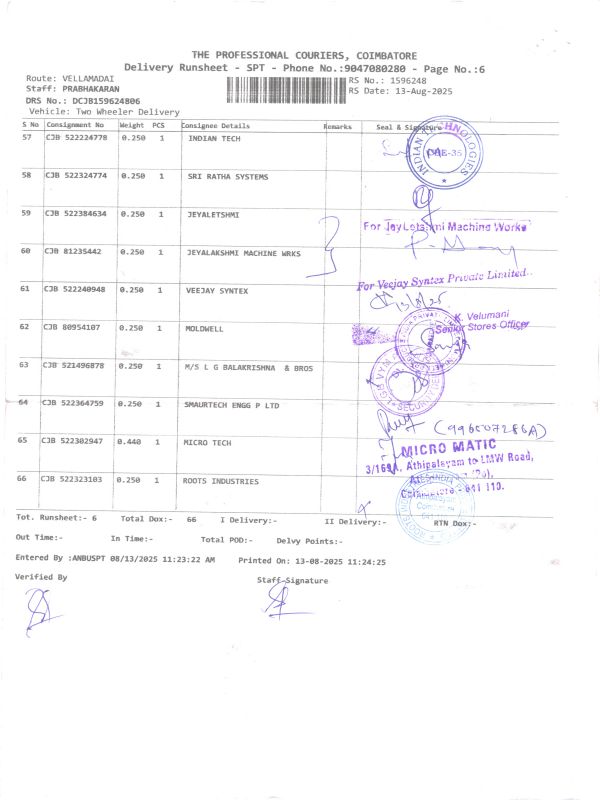 THE PROFESSIONAL COURIERS, COIMBATORE
Delivery Runsheet - SPT - Phone No.:9047080280 - Page No.:6
Route: VELLAMADAI
RS No.: 1596248
Staff: PRABHAKARAN
RS Date: 13-Aug-2025
DRS No.: DCJB159624806
Vehicle: Two Wheeler Delivery
S No Consignment No Weight PCS Consignee Details Remarks Seal & Signature
57 CJB 522224778 0.250 1 INDIAN TECH
INDIAN TECHNOLOGIES
58 CJB 522324774 0.250 1 SRI RATHA SYSTEMS
59 CJB 522384634 0.250 1 JEYALETSHMI
For JeyLetshmi Machine Works
60 CJB 81235442 0.250 1 JEYALAKSHMI MACHINE WRKS
For Veejay Syntex Private Limited..
61 CJB 522240948 0.250 1 VEEJAY SYNTEX
13/8/25
K. Velumani
Senior Stores Officer
62 CJB 80954107 0.250 1 MOLDWELL
63 CJB 521496878 0.250 1 M/S L G BALAKRISHNA & BROS
SECURITY
64 CJB 522364759 0.250 1 SMAURTECH ENGG P LTD
65 CJB 522302947 0.440 1 MICRO TECH
MICRO MATIC
3/169A, Athipalayam to LMW Road,
Coimbatore - 641 110.
66 CJB 522323103 0.250 1 ROOTS INDUSTRIES
Tot. Runsheet:- 6 Total Dox:- 66 I Delivery:- II Delivery:- RTN Dox:-
Out Time:- In Time:- Total POD:- Delvy Points:-
Entered By :ANBUSPT 08/13/2025 11:23:22 AM Printed On: 13-08-2025 11:24:25
Verified By Staff-Signature